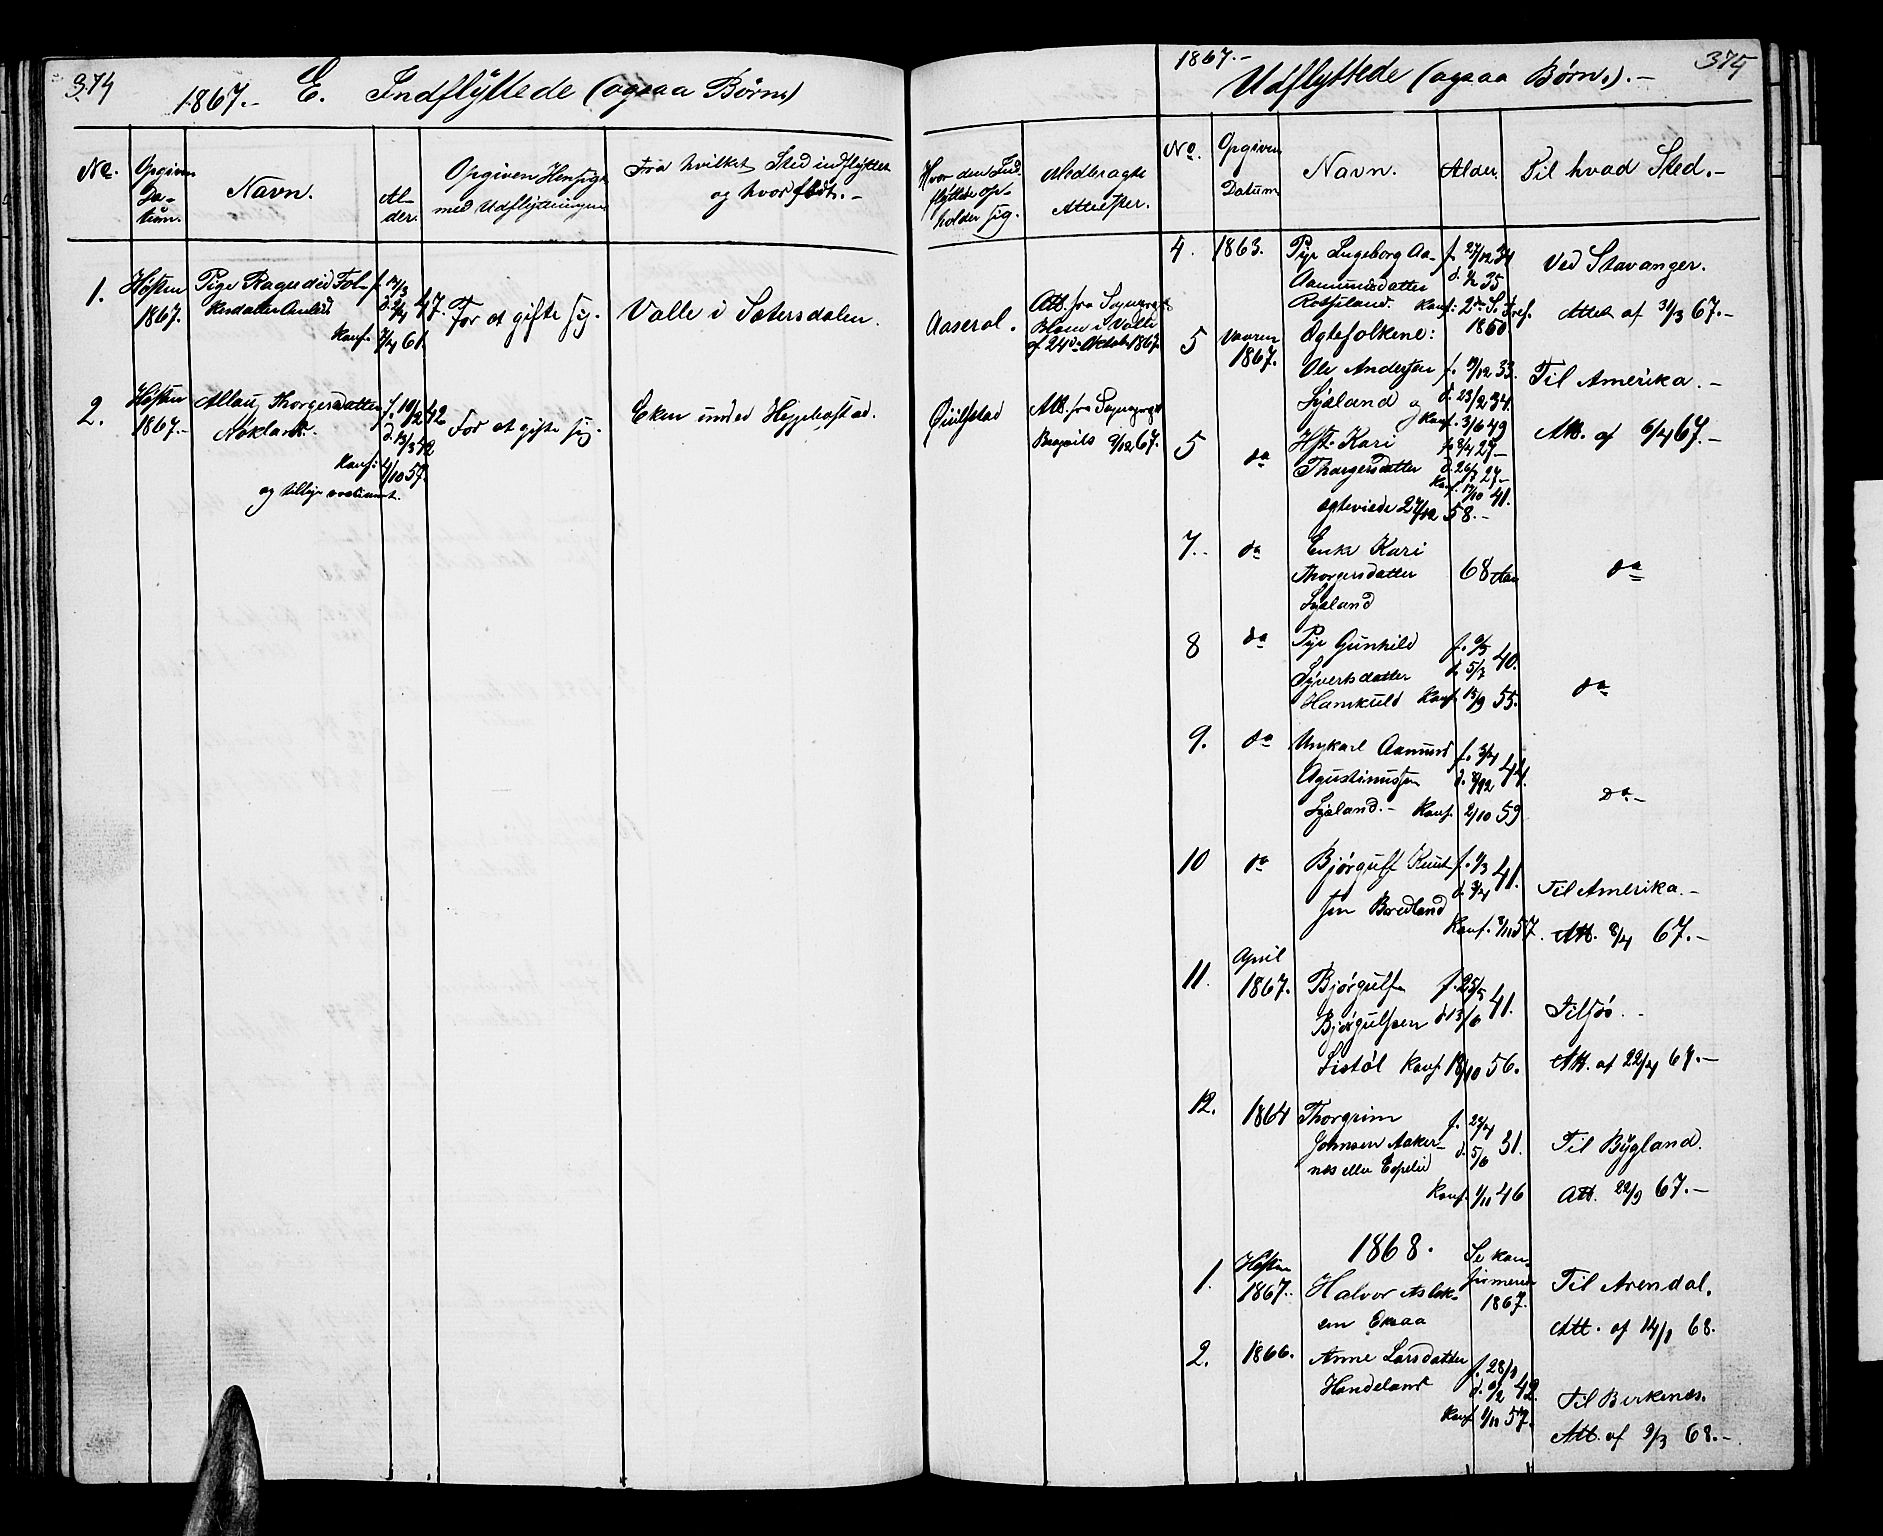 374
1867.- E. Indflÿttede (ogsaa Børn)
No. Opgiven Datum. Navn. Alder. Opgiven Hensigt med Udflytningen Fra hvilket Sted indflyttet og hvor født.-
Hvor den Indflyttede opholder sig. Medbragte Attester.
1. Høsten 1867. Pige Ragndid Fol-
kersdatter
f. 12/3
47.
Konf. 7/4 61
For at gifte sig. Valle i Sætersdalen.
Aaseral. Att. fra Sognepræst
i Valle
af 24de Oktob. 1867.
2. Høsten 1867.- Thorgersdatter
f. 10/2 42
d. 13/3 42
Konf: 4/10 57.
For at gifte sig. Eken under Hegebostad.
Øiulstad Att. fra Sognepræst
9/12 67.
1867.-
375
Udflyttede (ogsaa Børn).-
No. Opgiven Datum Navn. Alder Til hvad Sted.-
4. 1863. Pige Ingeborg Aa-
Aamundsdatter
Rosseland.
f. 27/12 34
d. 1/2 35
1850
Ved Stavanger.
Attest af 31/3 67.-
5 Vaaren 1867. Ægtefolkene:
Ole Andersen
Lysland og
f. 19/12 33.
d. 23/2 34.
Konf. 3/6 49
Til Amerika.-
Att. af 6/4 67.-
5 do Hst. Kari
Thorgersdatter
f. 8/4 27-
d. 26/7 27-
Konf. 17/10 41.
ægteviede 27/12 58.-
7.- do Enke Kari
Thorgersdatter
Lysland
68 Aar
do
8 do Pige Gunhild
Syvertsdatter
Hamkuld
d. 5/7 40.
Konf. 13/9 55.
do
9. do Ungkarl Aamund
Agustinussen
Lysland.-
f. 3/4
44.
Konf. 2/10 59
do.-
10 do Bjørgulf Knut-
sen Bredland
f. 1/3
41.
d. 3/4
Konf. 8/11 57.
Til Amerika.-
Att. 8/4 67.-
11. April 1867. Bjørgulf
Bjørgulfsen
Listøl
f. 25/5
41.
d. 13/6
Konf. 19/10 56.
Tilsøs.-
Att. af 22/4 67.-
12. 1864 Thorgrim
Johnsen Aaker-
næs eller Espelid
f. 27/4
31.
d. 5/6
Konf. 1/11 46
Til Bÿgland.
Att. 22/9 67.-
1868.
1. Høsten 1867.- Halvor Aslak-
sen Eksaa
Se kon-
firmerede
1867.
Til Arendal.
Att. af 14/1 68.
2. 1866. Anne Larsdatter
Handeland
f. 28/1
42.
Konf. 1/11 57.
Til Birkenæs.
Att. af 9/3 68.-